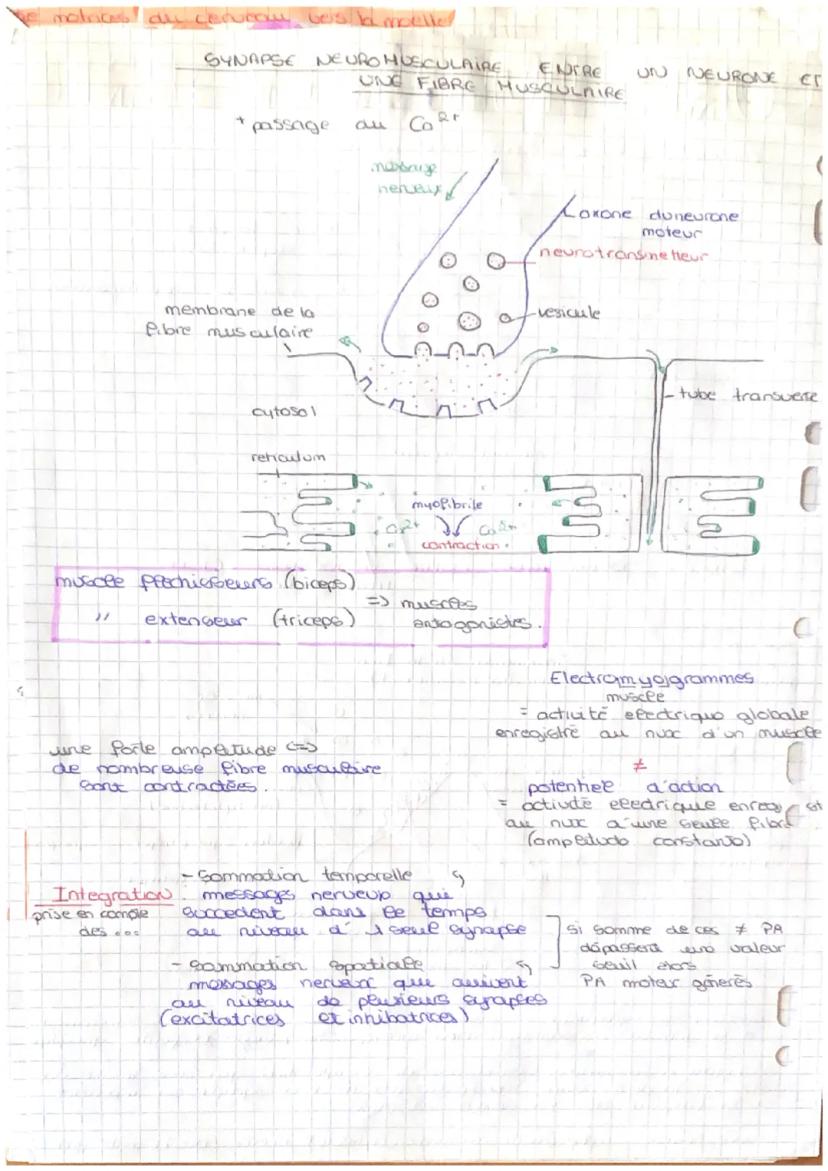 motrices du cerveau vers la moelle
SYNAPSE NEUROMUSCULAIRE ENTRE UN NEURONE ET
UNE FIBRE MUSCULAIRE
+ passage au Ca2+
message
nerveux
axone du neurone
moteur
neurotransmetteur
vesicule
membrane de la
fibre musculaire
tube transverse
cytosol
reticulum
myofibrile
Ca2+ Ca2+
contraction
muscle fléchisseurs (biceps)
=> muscles
" extenseur (triceps) antagonistes.
Electromyogrammes
muscle
= activité electrique globale
enregistré au nvx d'un muscle
une forte amplitude <=>
de nombreuse fibre musculaire
sont contractées.
≠
potentiel d'action
= activité electrique enreg
au nvx d'une seule fibre
(amplitude constante)
- Sommation temporelle
Integration : messages nerveux qui
prise en compte succedent dans le temps
des ... au niveau d'1 seul synapse
si somme de ces ≠ PA
dépassera une valeur
seuil alors
PA moteur générés
- sommation spatiale
messages nerveux qui arrivent
au niveau de plusieurs synapses
(excitatrices et inhibatrices)